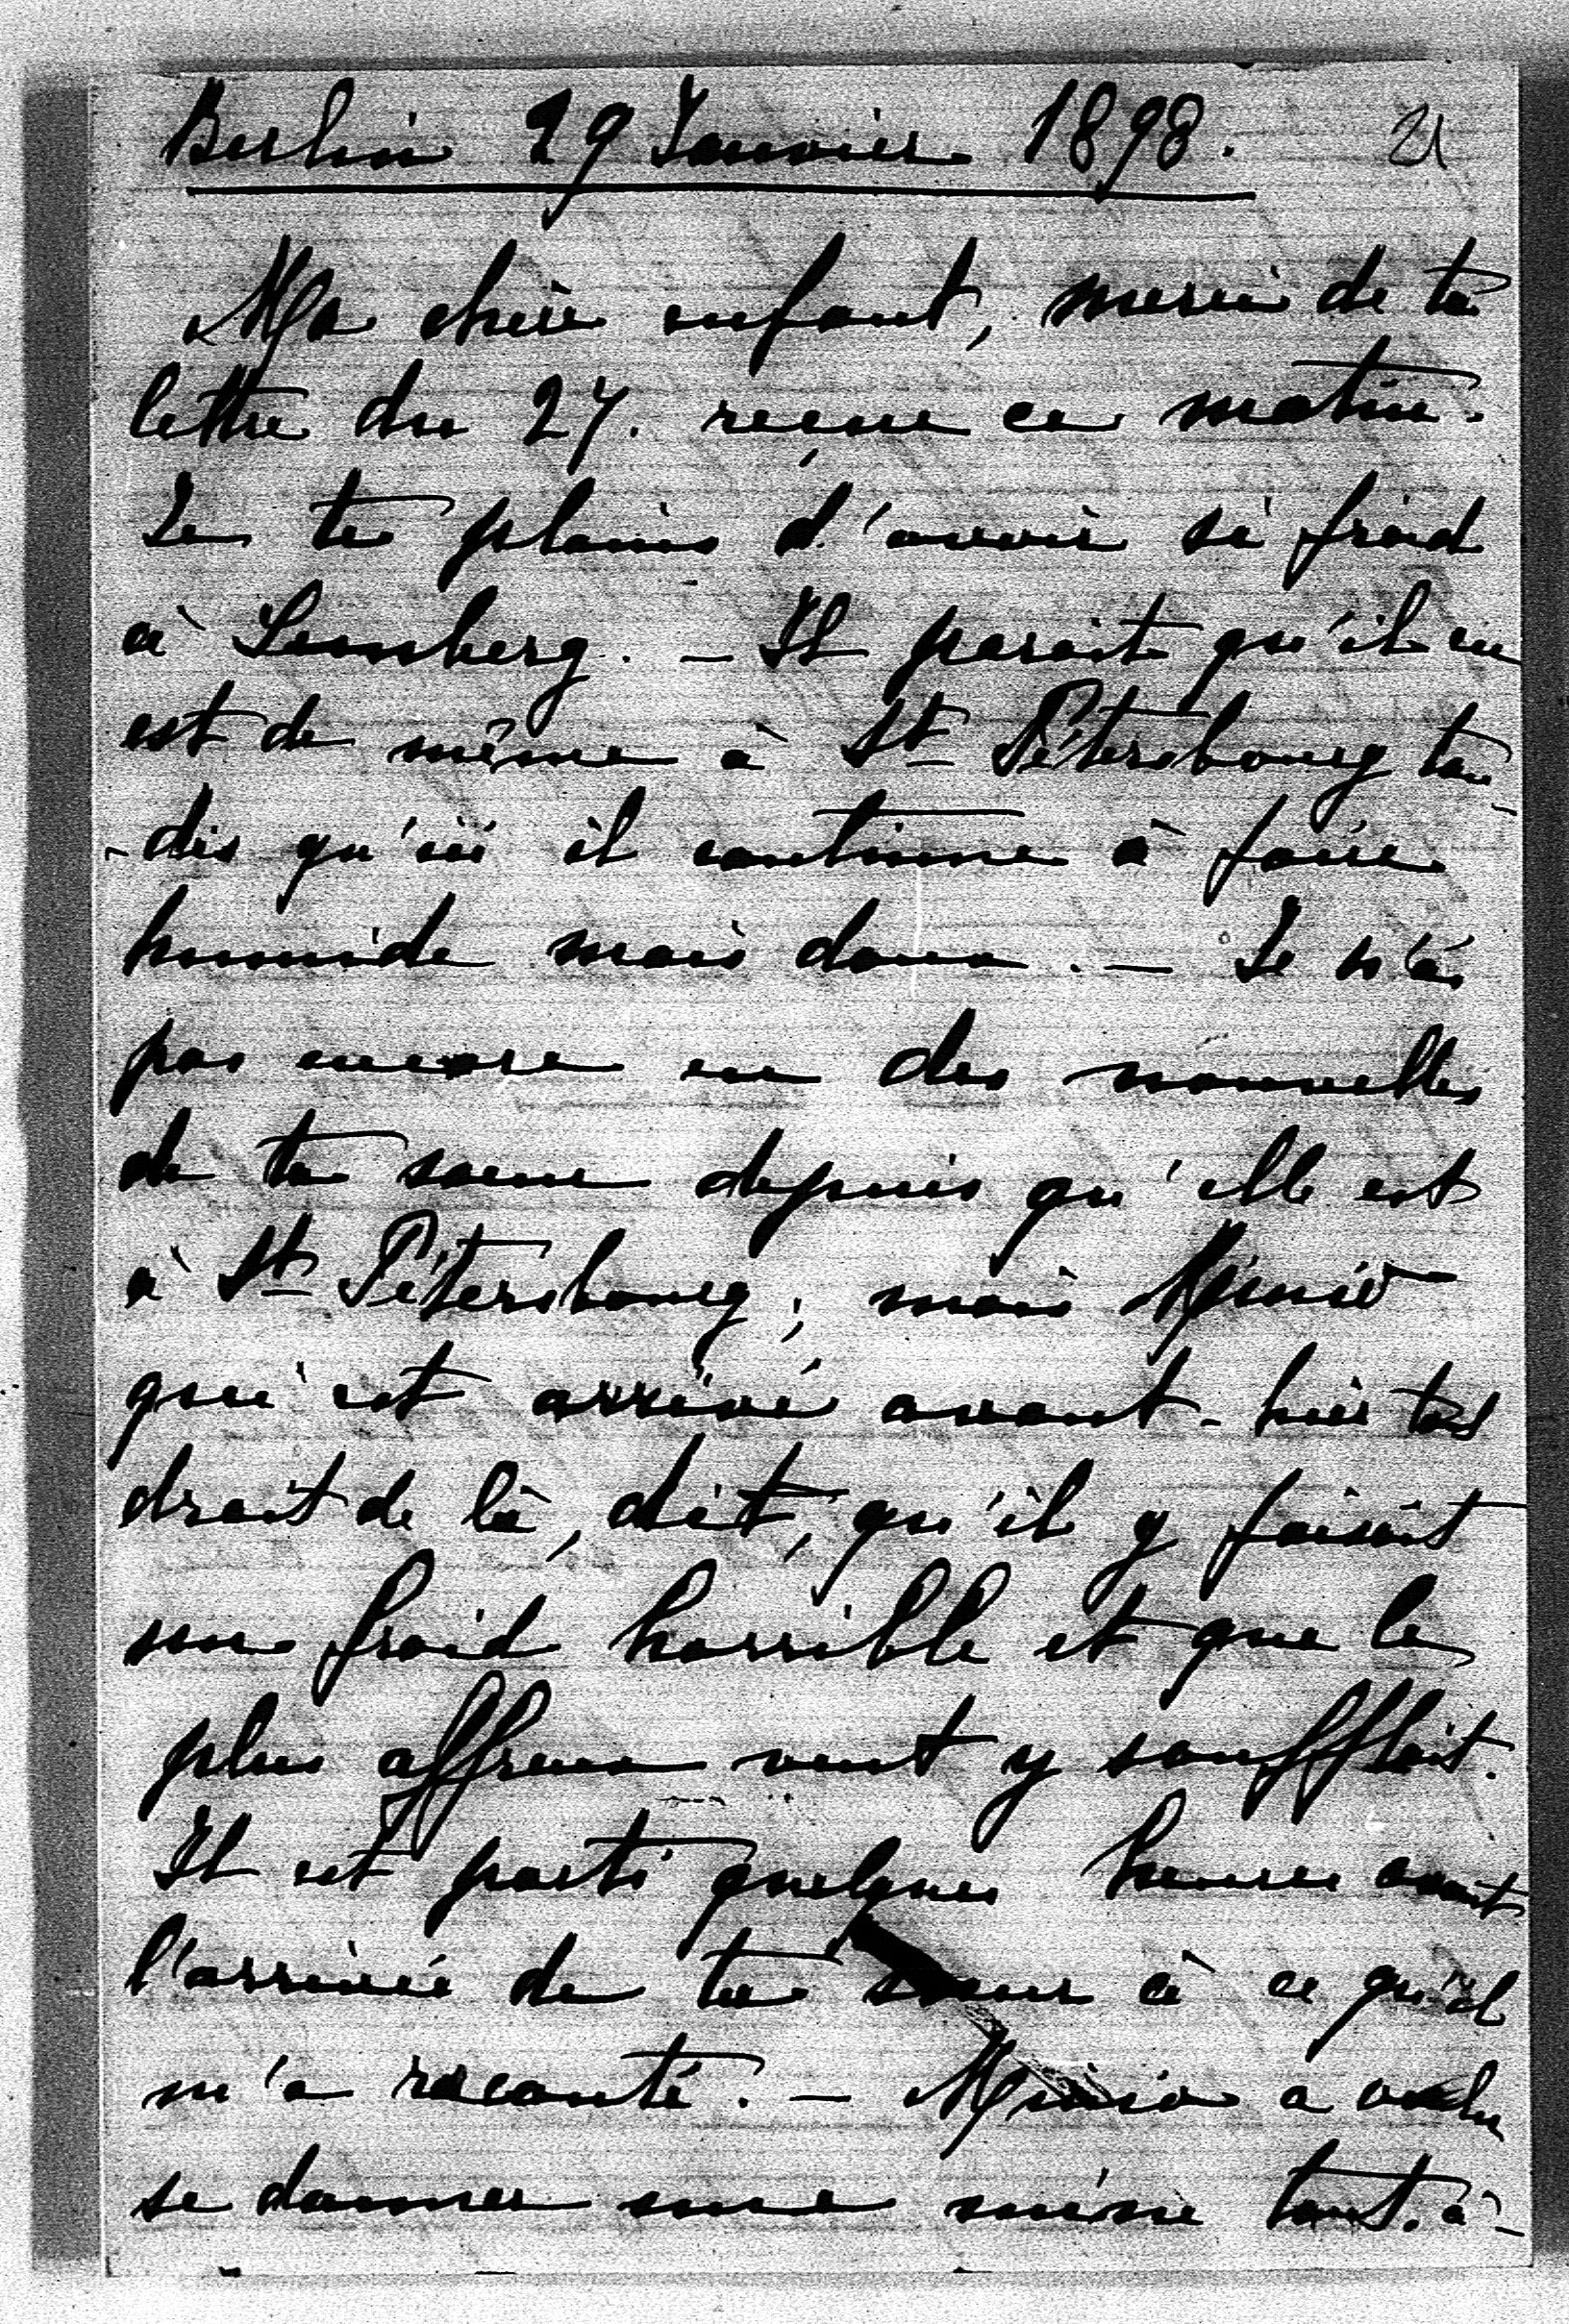 Berlin 29 Janvier 1898. 21
Ma chère enfant, merci de ta
lettre du 27. reçue ce matin.
Je te plains d'avoir si froid
à Lemberg. — Il parait qu'il en
est de même à St Pétersbourg tan-
-dis qu'ici il continue à faire
humide mais doux. — Je n'ai
pas encore eu des nouvelles
de ta soeur depuis qu'elle est
à St Pétersbourg, mais
qui est arrivé avant-hier tout
droit de là, dit, qu'il y faisait
un froid horrible et que le
plus affreux vent y soufflait.
Il est parti quelques heures avant
l'arrivée de ta soeur à ce qu'il
m'a raconté. — a voulu
se donner une mine tout-à-